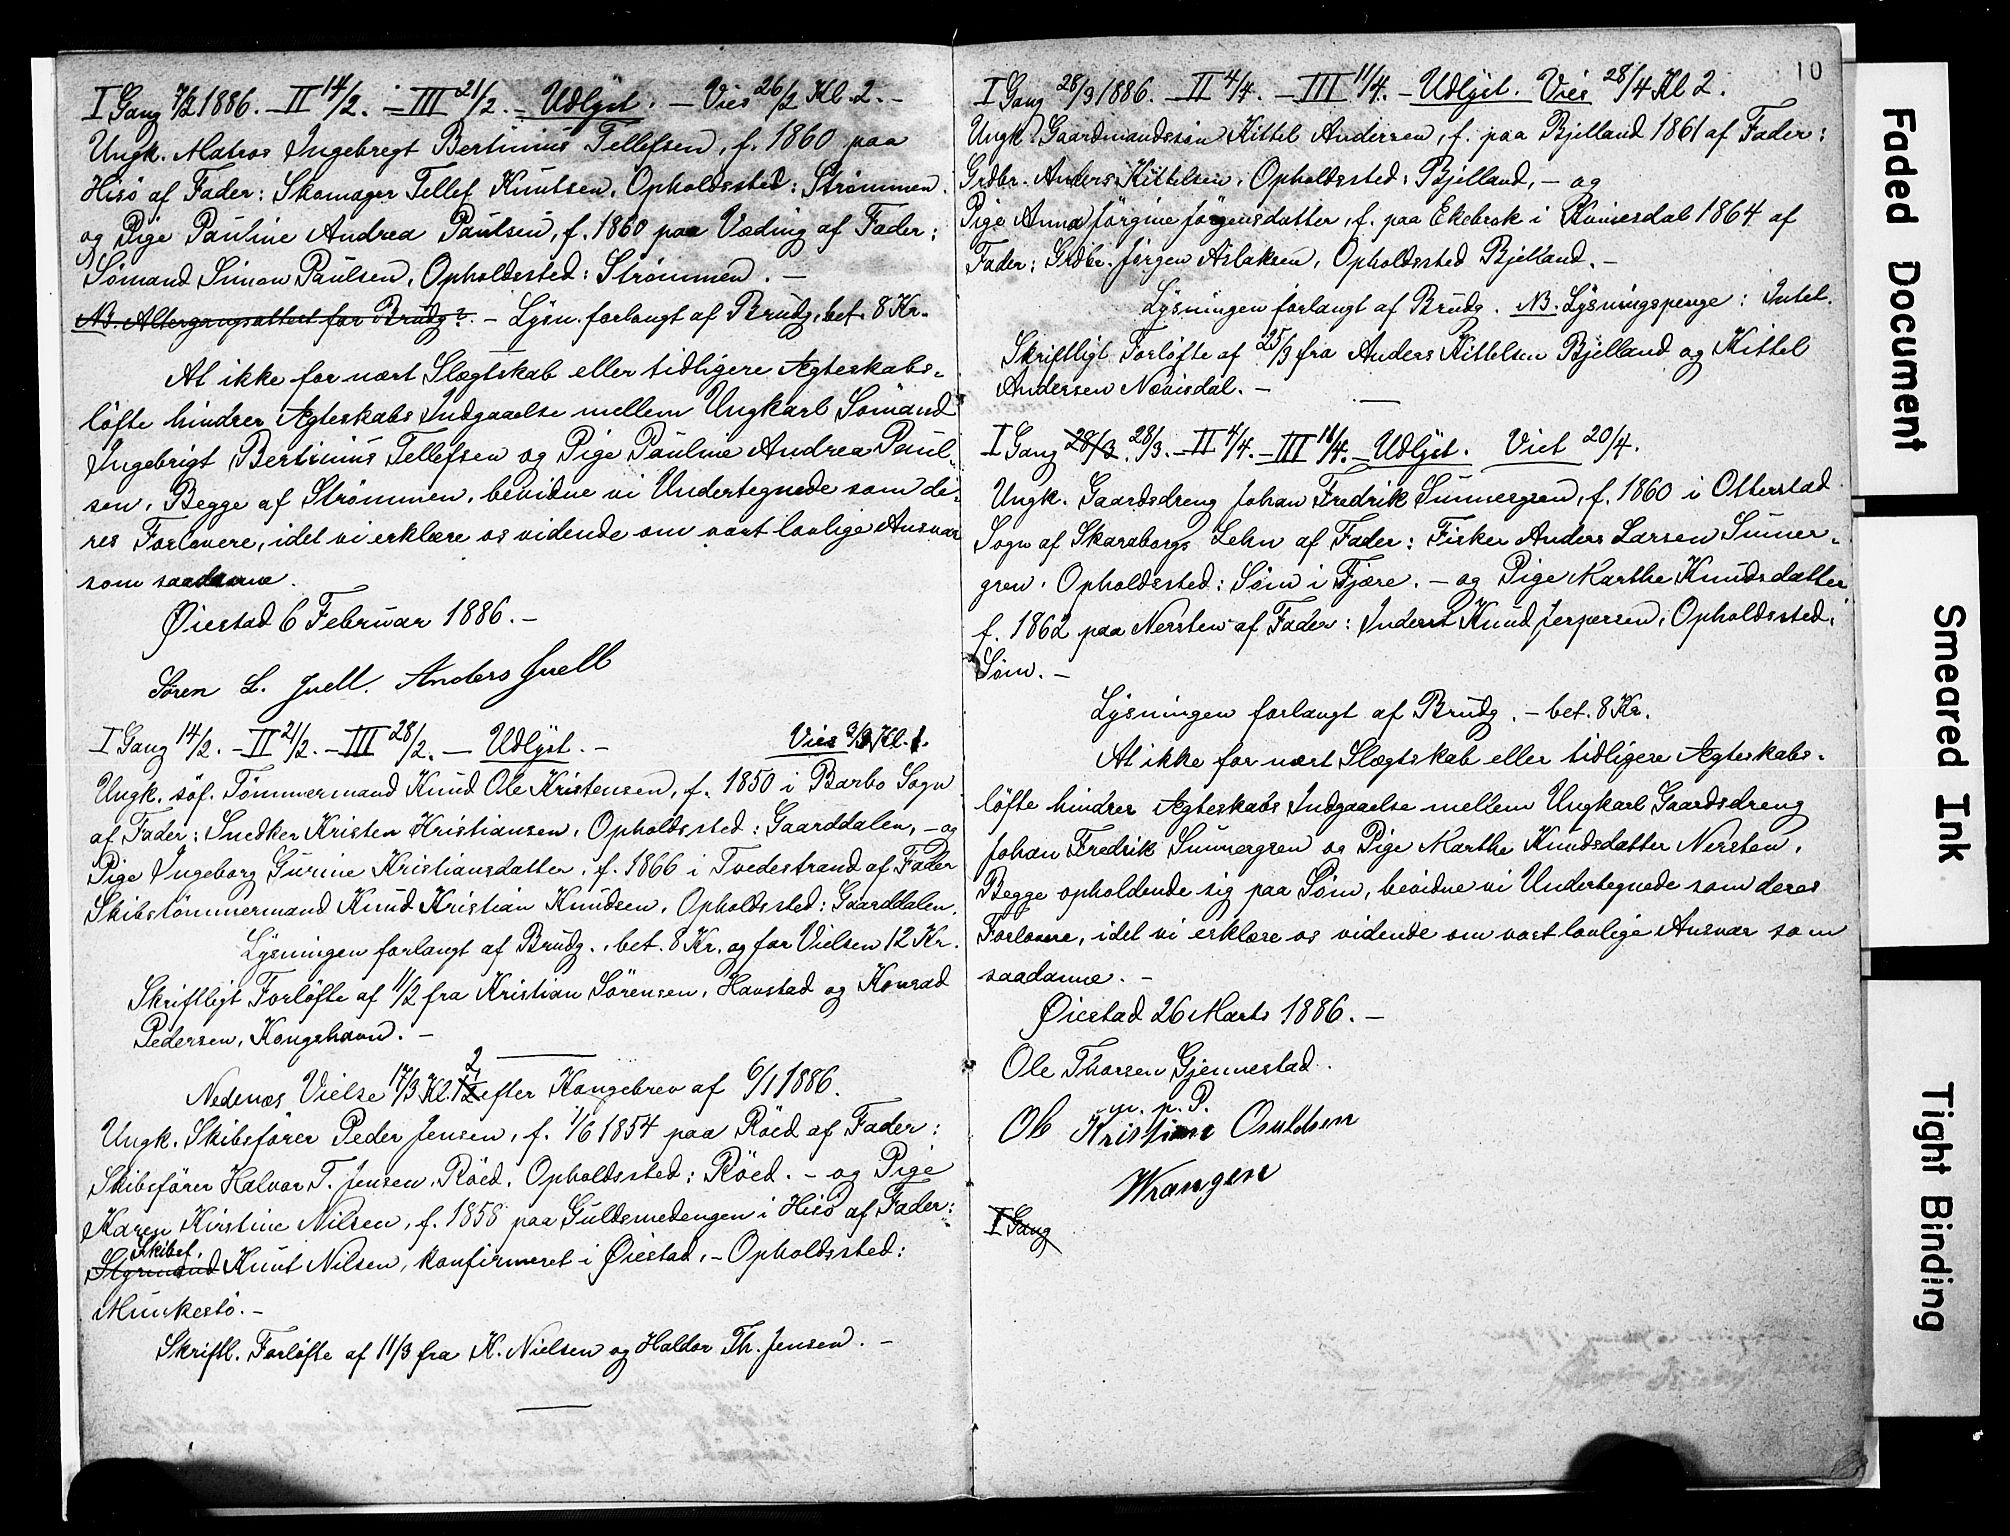 I Gang 7/2 1886. - II 14/2. - III 21/2. - Udlyst. - Vies 26/2 Kl. 2. -
Ungk. Matros Ingebregt Bertinius Tellefsen, f. 1860 paa
Hisö af Fader: Skomager Tellef Knutsen, Opholdssted: Strömmen.
og Pige Pauline Andrea Paulsen, f. 1860 paa Væding af Fader:
Sömand Simon Paulsen, Opholdssted: Strömmen. -
NB. Altergangsattest for Brudg? - Lysn. forlangt af Brudg. bet. 8 Kr.
At ikke for nært Slægtskab eller tidligere Ægteskabs-
löfte hindrer Ægteskabs Indgaaelse mellem Ungkarl Sömand
Ingebrigt Bertinius Tellefsen og Pige Pauline Andrea Paul-
sen, Begge af Strömmen, bevidne vi Undertegnede som de-
res Forlovere, idet vi erklære os vidende om vort lovlige Ansvar
som saadanne.
Øiestad 6 Februar 1886. -
Sören L. Juell. Anders Juell
I Gang 14/2. - II 21/2. - III 28/2. - Udlyst. - Vies 3/3 Kl. 1.
Ungk. söf. Tömmermand Knud Ole Kristensen, f. 1850 i Barbo Sogn
af Fader: Snedker Kristen Kristiansen, Opholdssted: Gaarddalen, - og
Pige Ingeborg Gurine Kristiansdatter, f. 1866 i Tvedestrand af Fader
Skibstömmermand Knud Kristian Knudsen, Opholdssted: Gaarddalen.
Lysningen forlangt af Brudg., bet. 8 Kr. og for Vielsen 12 Kr.
Skriftligt Forlöfte af 11/2 fra Kristian Sörensen, Havstad og Konrad
Pedersen, Kongshavn. -
Nedenæs Vielse 17/3 Kl. 12 2 efter Kongebrev af 6/1 1886.
Ungk. Skibsförer Peder Jensen, f. 1/6 1854 paa Röed af Fader:
Skibsförer Halvor T. Jensen, Röed. Opholdssted: Röed. - og Pige
Karen Kirstine Nilsen, f. 1858 paa Guldsmedengen i Hisö af Fader:
Skibsf.
Styrmand Knut Nilsen, konfirmeret i Øiestad, - Opholdssted:
Munkestö. -
Skriftl. Forlöfte af 11/3 fra K. Nielsen og Haldor Th. Jensen. -
10
I Gang 28/3 1886. - II 4/4. - III 11/4. - Udlyst. Vies 28/4 Kl 2.
Ungk. Gaardmandssön Kittel Andersen, f. paa Bjelland 1861 af Fader:
Grdbr. Anders Kittelsen, Opholdssted: Bjelland, - og
Pige Anna Jörgine Jörgensdatter, f. paa Ekebrok i Kvinesdal 1864 af
Fader: Grdbr. Jörgen Aslaksen, Opholdssted Bjelland. -
Lysningen forlangt af Brudg. NB. Lysningspenge: Intet.
Skriftligt Forlöfte af 25/3 fra Anders Kittelsen Bjelland og Kittel
Andersen Nævisdal. -
I Gang 28/3. 28/3. - II 4/4. - III 11/4. - Udlyst. Viet 20/4.
Ungk. Gaardsdreng Johan Fredrik Sunnergren, f. 1860 i Otterstad
Sogn af Skaraborgs Lehn af Fader: Fisker Anders Larsen Sunner-
gren. Opholdssted: Söm i Fjære. - og Pige Marthe Knudsdatter
f. 1862 paa Nersten af Fader: Inderst Knud Jespersen, Opholdssted:
Söm. -
Lysningen forlangt af Brudg. - bet. 8 Kr.
At ikke for nært Slægtskab eller tidligere Ægteskabs-
löfte hindrer Ægteskabs Indgaaelse mellem Ungkarl Gaardsdreng
Johan Fredrik Sunnergren og Pige Marthe Knudsdatter Nersten,
Begge opholdende sig paa Söm, bevidne vi Undertegnede som deres
Forlovere, idet vi erklære os vidende om vort lovlige Ansvar som
saadanne. -
Øiestad 26 Marts 1886. -
Ole Thorsen Gjennestad.
m. p. P.
Ole Kristian Osuldsen
Wrangen
I Gang
Faded Document
Smeared Ink
Tight Binding